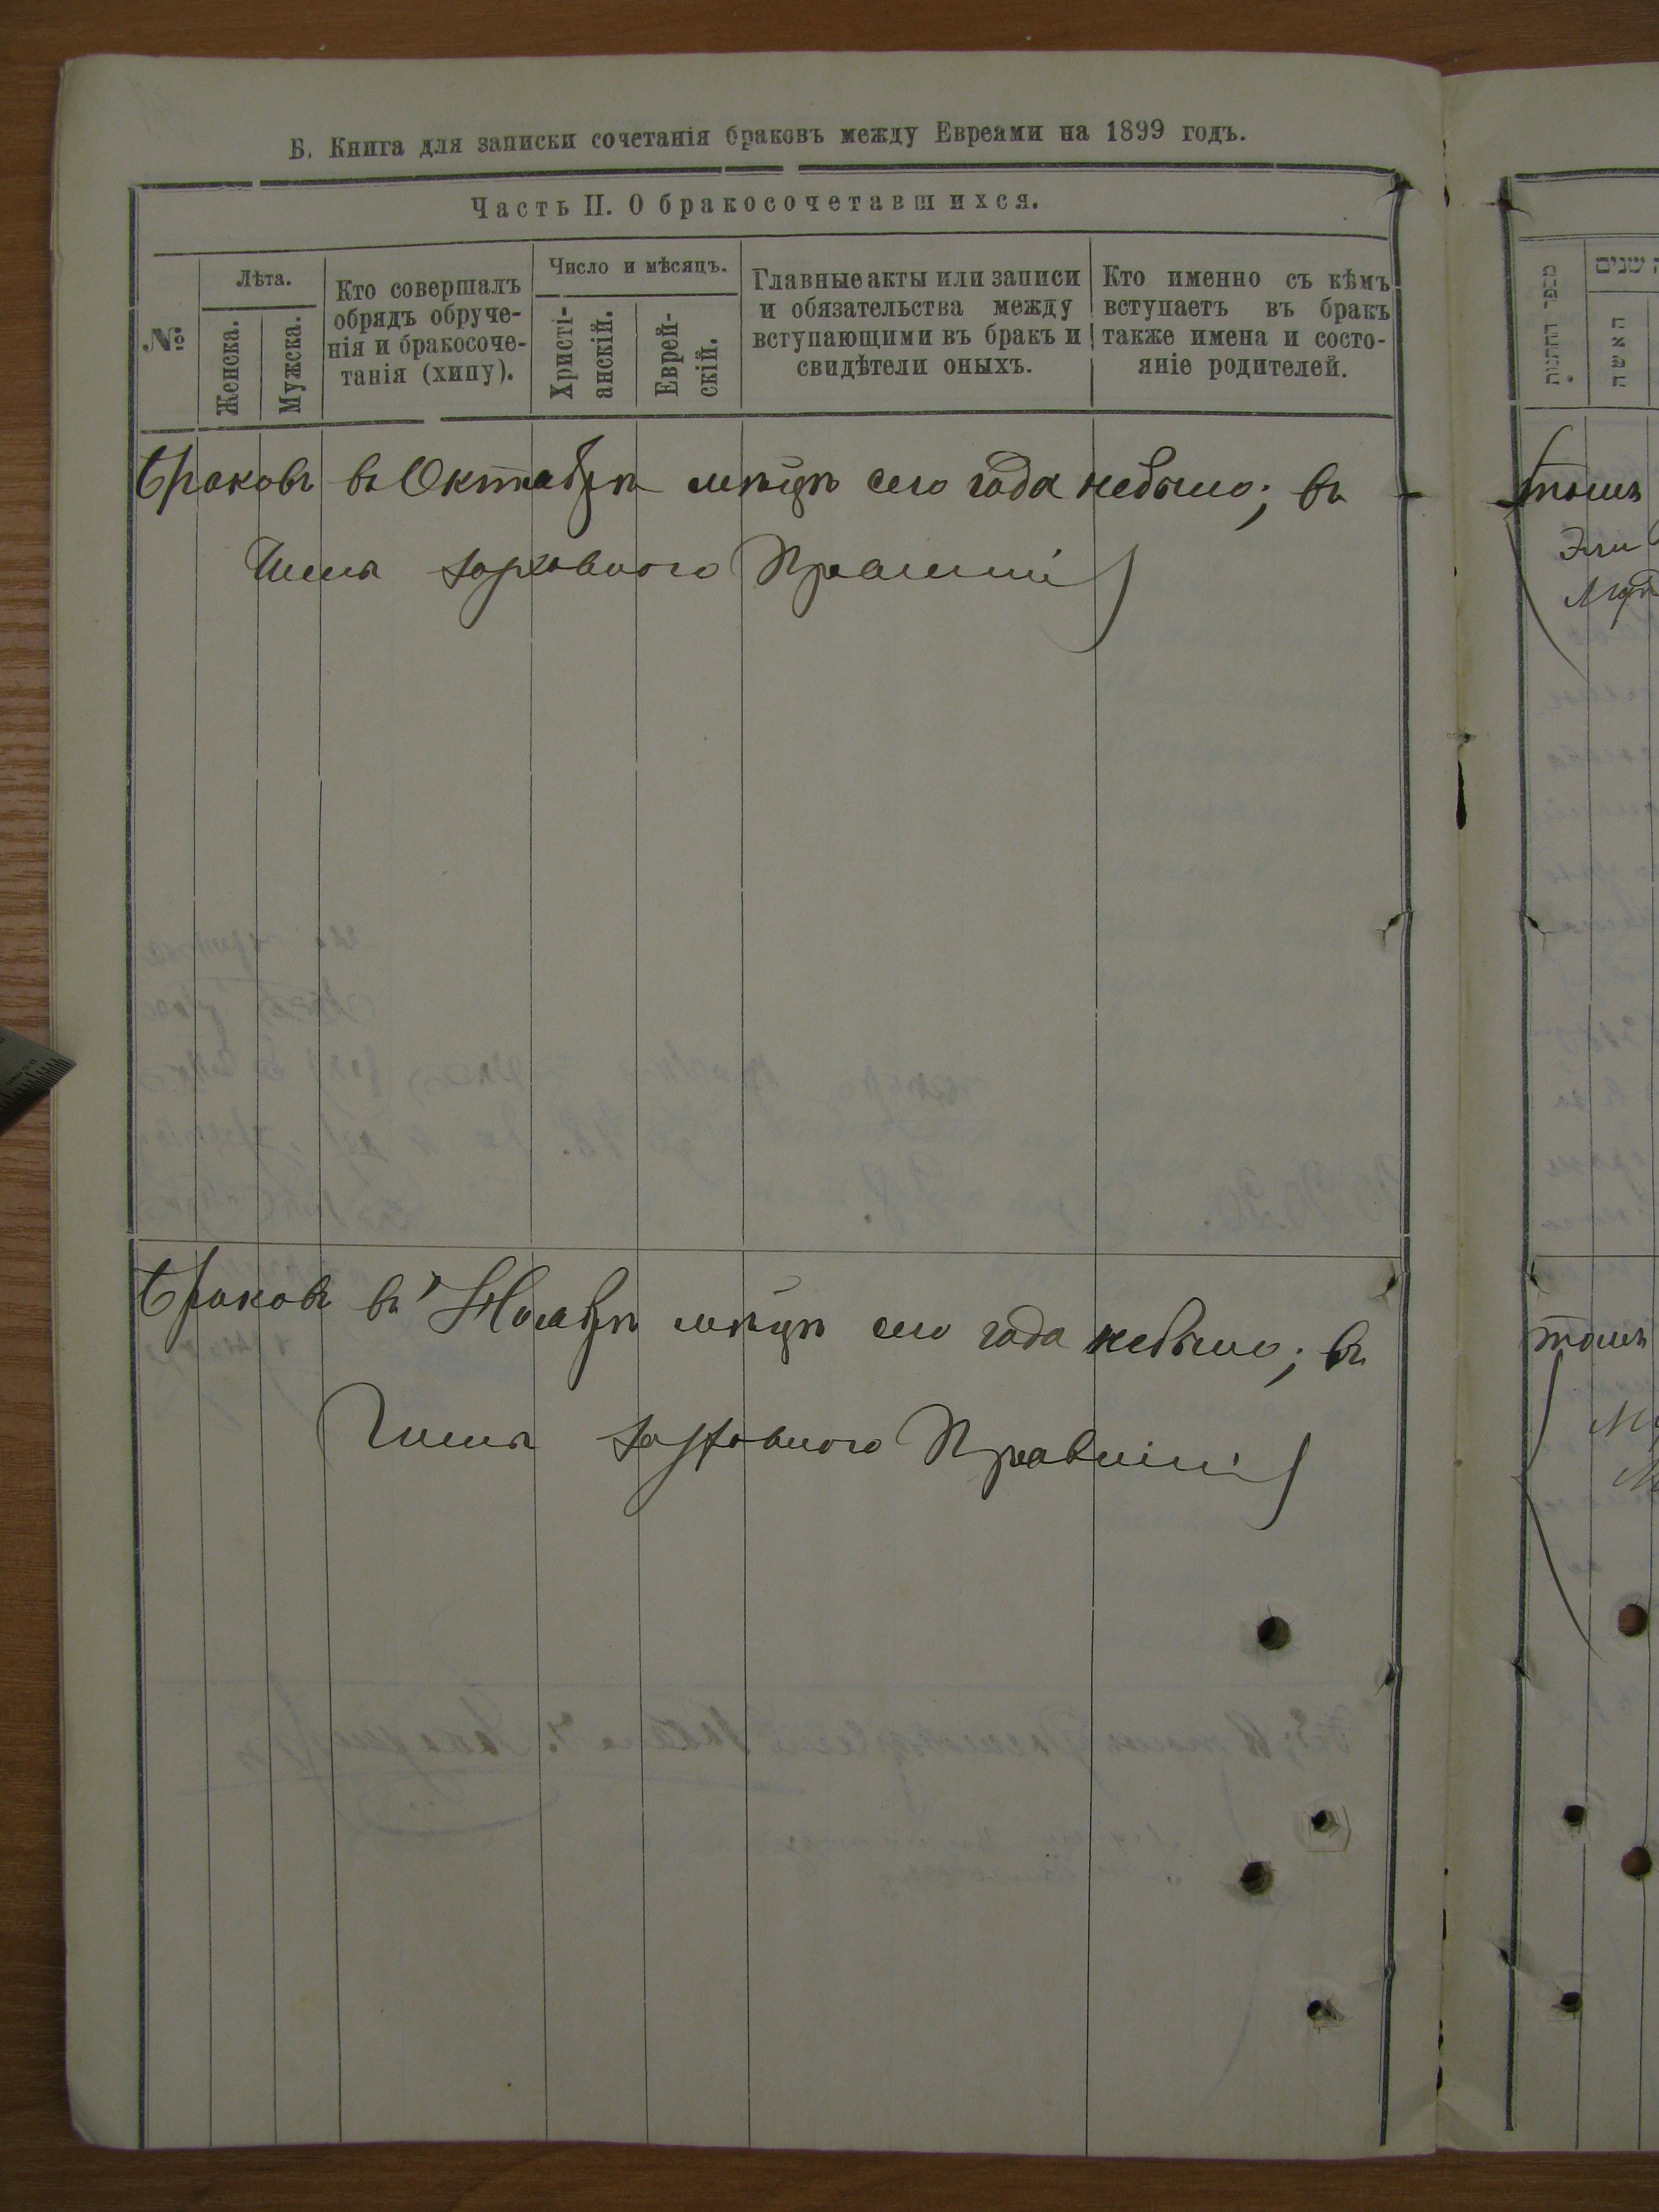 Б. Книга для записки сочетанія браковъ между Евреями на 1899 годъ.
Часть II. О бракосочетавшихся.
№
Лѣта.
Женска.
Мужска.
Кто совершалъ
обрядъ обруче-
нія и бракосоче-
танія (хипу).
Число и мѣсяцъ.
Христі-
анскій.
Еврей-
скій.
Главные акты или записи
и обязательства между
вступающими въ бракъ и
свидѣтели оныхъ.
Кто именно съ кѣмъ
вступаетъ въ бракъ
также имена и состо-
яніе родителей.
Браковъ въ Октябрѣ мѣцѣ сего года небыло; въ
Члены духовнаго Правленія
Браковъ въ Ноябрѣ мѣцѣ сего года небыло; въ
Члены духовнаго Правленія
שנים
האשה
томъ
томъ